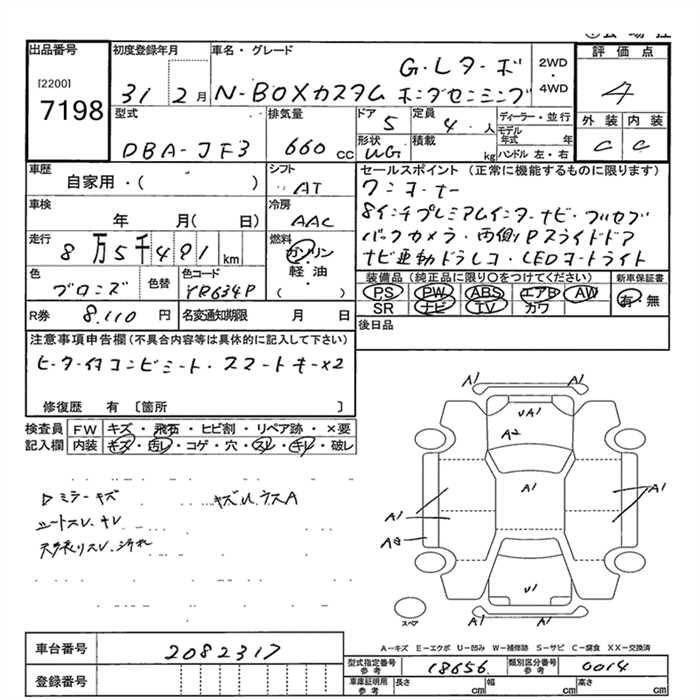 出品番号 初度登録年月 車名・グレード 評価点
[2200]
7198
31 2月
G・Lターボ
N-BOXカスタム ホンダセンシング
2WD
・
4WD
4
型式 排気量 ドア 定員 ディーラー・並行 外装 内装
DBA-JF3 660CC 5 4人 モデル年式 年 C C
形状 積載
WG kg ハンドル 左・右
車歴 シフト セールスポイント (正常に機能するものに限ります)
自家用・( ) AT ワンオーナー
車検 冷房 8インチプレミアムインターナビ・フルセグ
年 月( 日) AAC バックカメラ・両側Pスライドドア
走行 燃料 ナビ連動ドラレコ・LEDヘッドライト
8万5千491km ガソリン
軽油
( )
色 色替 色コード 装備品 (純正品に限り○をつけてください) 新車保証書
ブロンズ YR634P PS PW ABS エアB AW 有 無
SR ナビ TV カワ
R券 8,110円 名変通知期限 月 日 後日品
注意事項申告欄(不具合内容等は具体的に記入して下さい)
ヒーター付コンビシート・スマートキー×2
修復歴 有 〔箇所 〕
検査員 FW キズ・飛石・ヒビ割・リペア跡・×要
記入欄 内装 キズ・汚レ・コゲ・穴・スレ・キレ・破レ
ミラーキズ
シートスレ・キレ
天張リスレ、汚れ
A1 A1
UA1
A2
A1 A1 A1
A1
A3
U1
A1 A1
スペア
A―キズ E―エクボ U―凹み W―補修跡 S―サビ C―腐食 XX―交換済
車台番号 2082317
型式指定番号 参考 18656 類別区分番号 参考 0014
登録番号
車庫証明用 参考 長さ cm 幅 cm 高さ cm